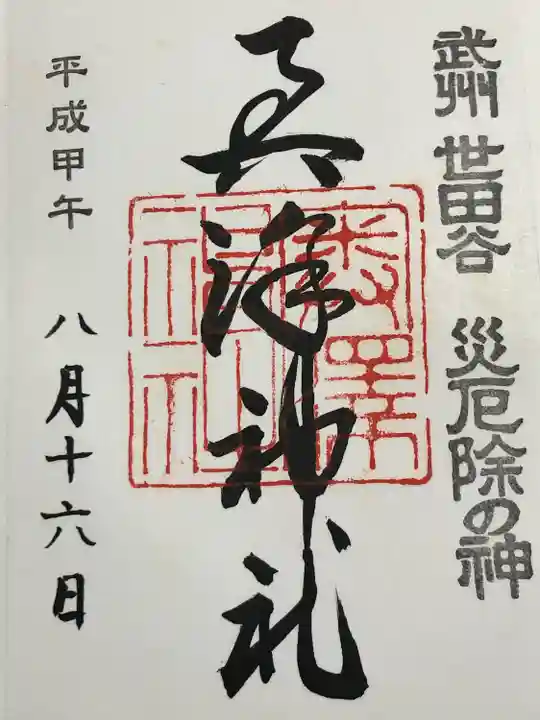 武州 世田谷 災厄除の神
奥澤神社
平成甲午 八月十六日